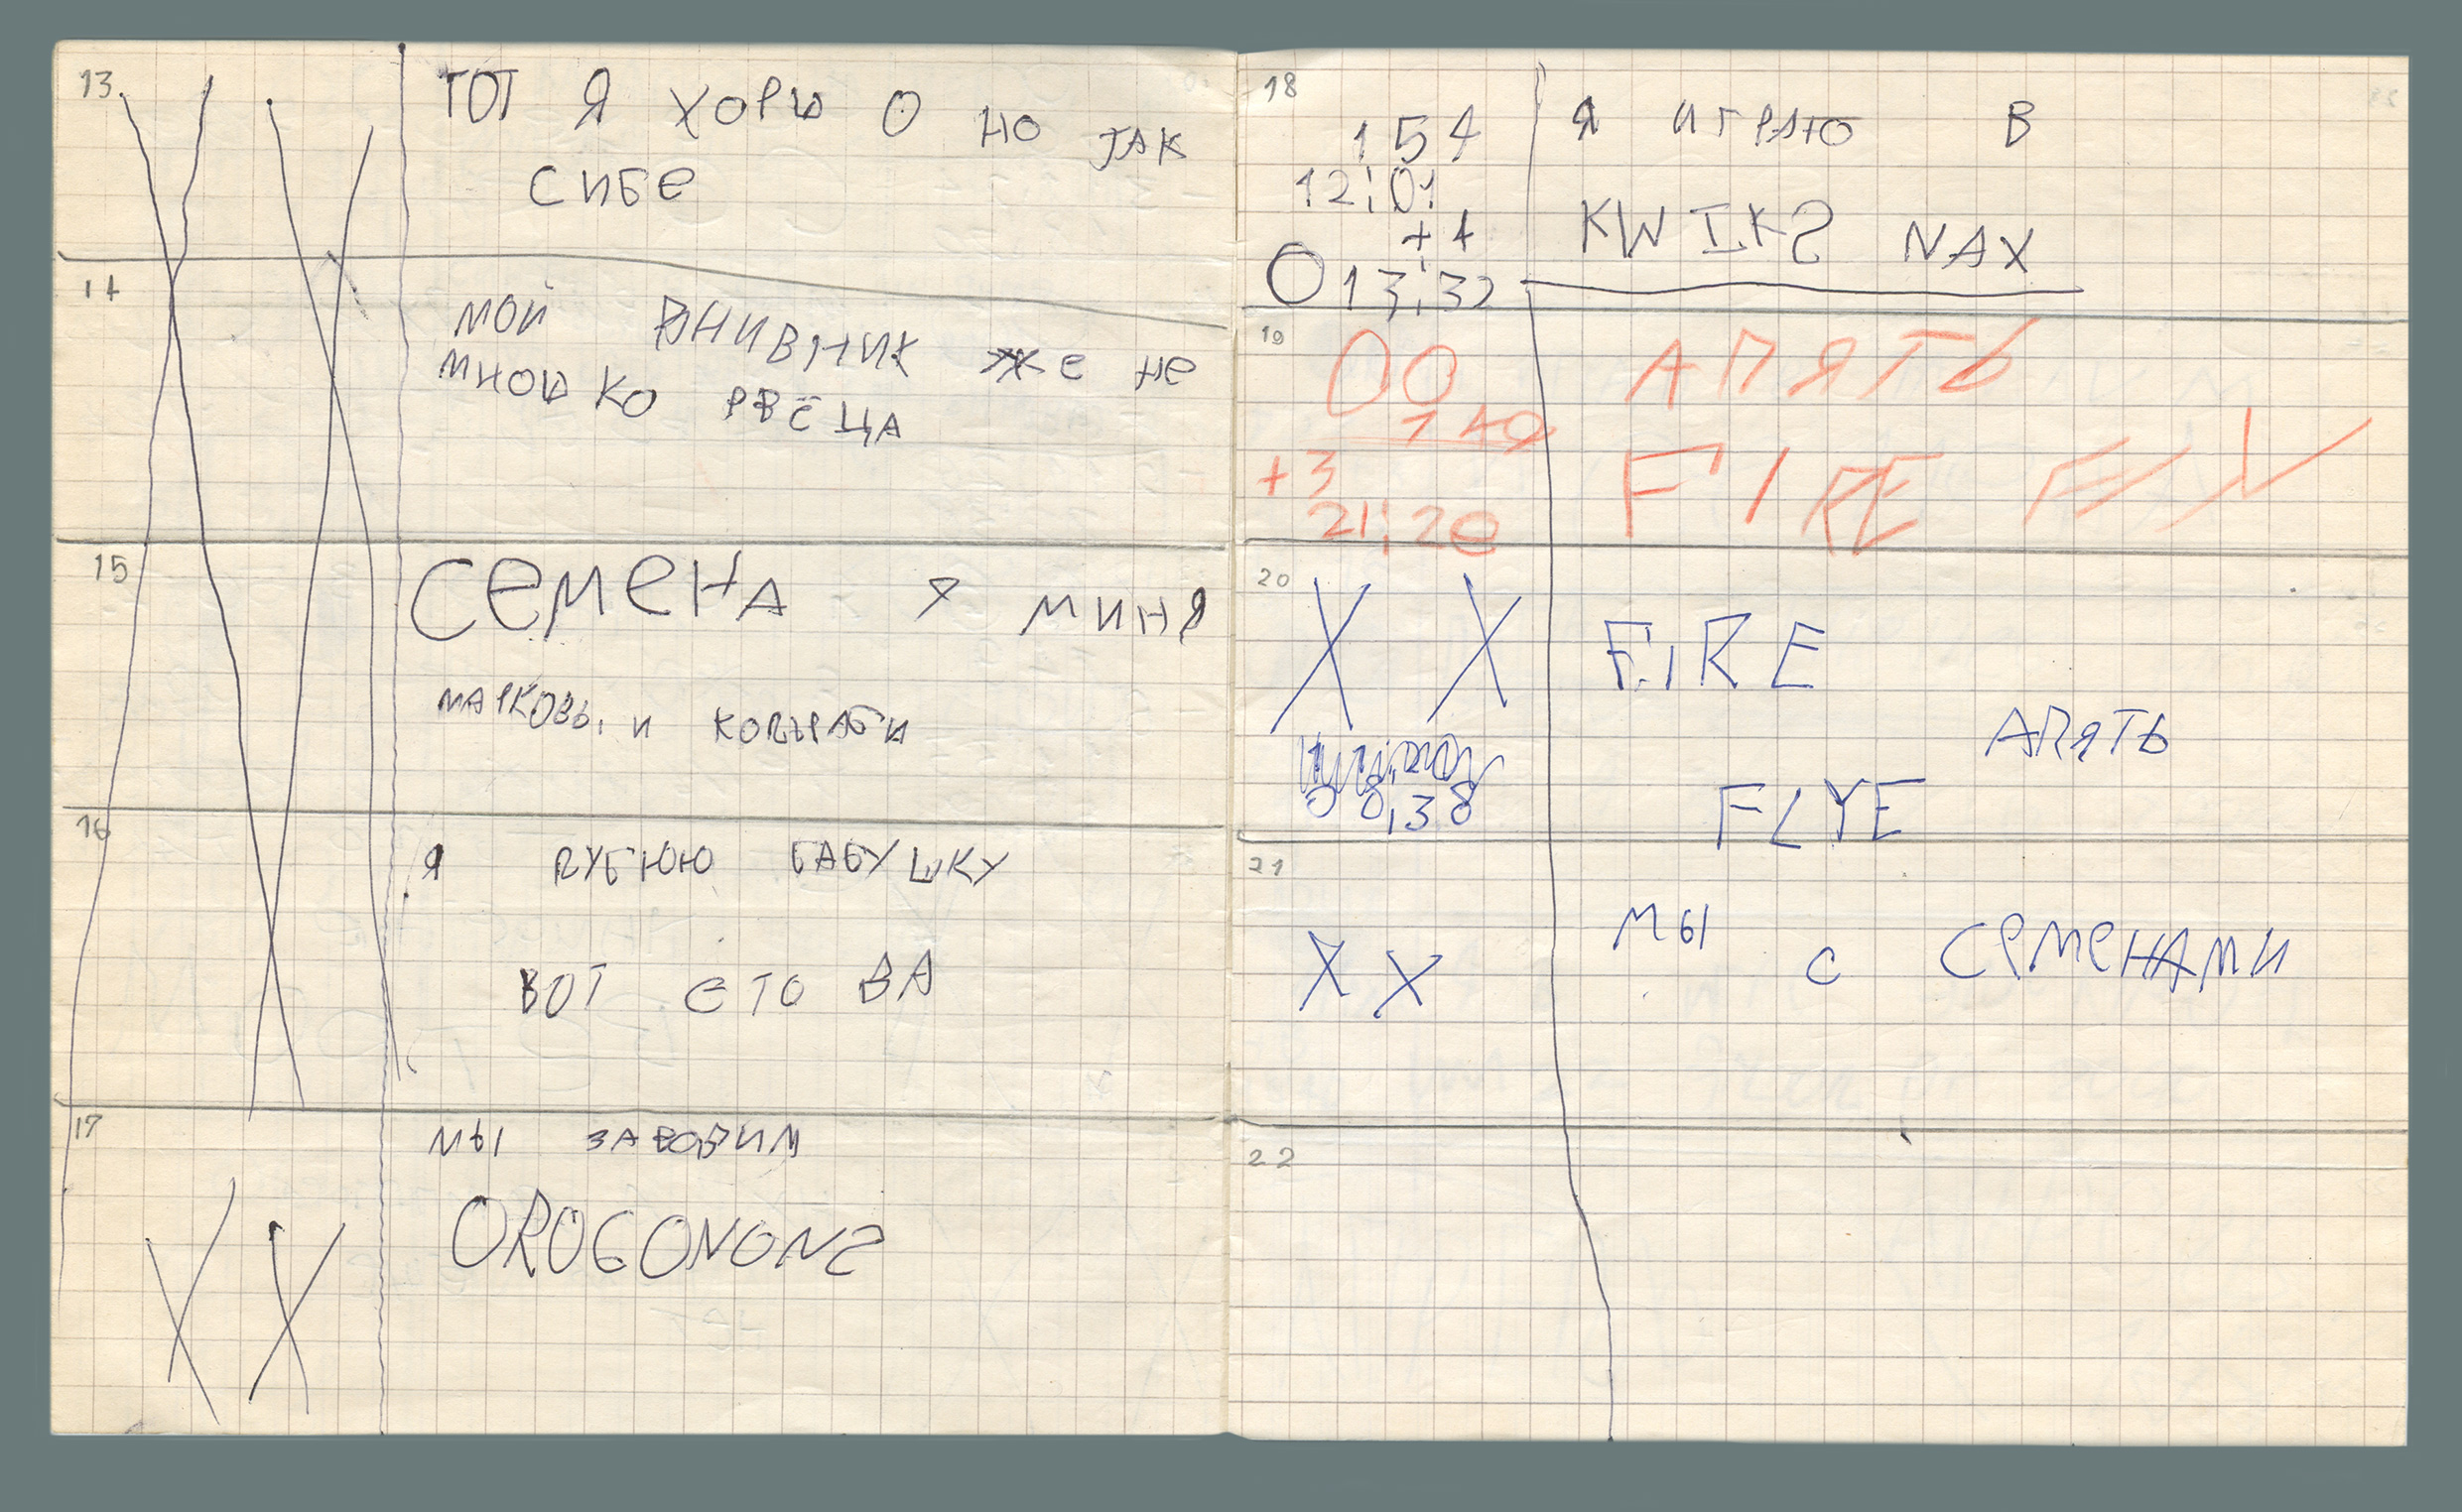 13
ТОТ Я ХОРШ О НО ТАК
СИБЕ
14
МОЙ ДНИВНИК ЖЕ НЕ
МНОШКО РВЁЦА
15
СЕМЕНА У МИНЯ
МАРКОВЬ, И
16
Я ЛУБЮЮ БАБУШКУ
ВОТ ЕТО ДА
17
МЫ ЗАВОДИМ
OROGONONS
18
154
12:01
+1
013:32
Я ИГРАЮ В
KWIKS NAX
19
00
149
+3
21:20
АПЯТЬ
FIRE FLY
20
X X
00:38
FIRE
АПЯТЬ
FLYE
21
X X
МЫ С СЕМЕНАМИ
22